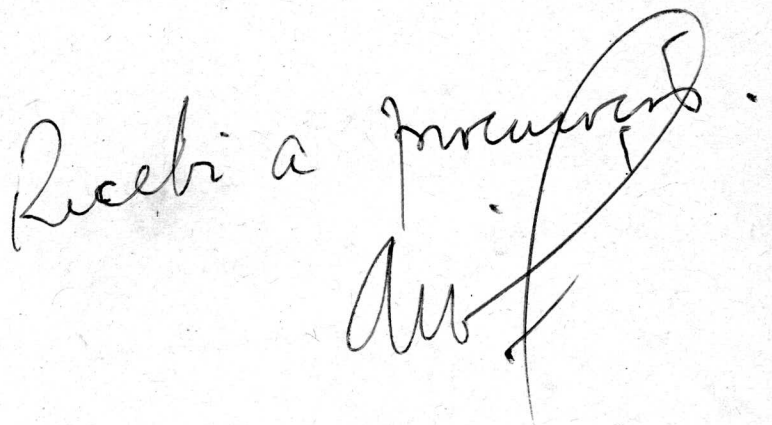 Recebi a procuração.